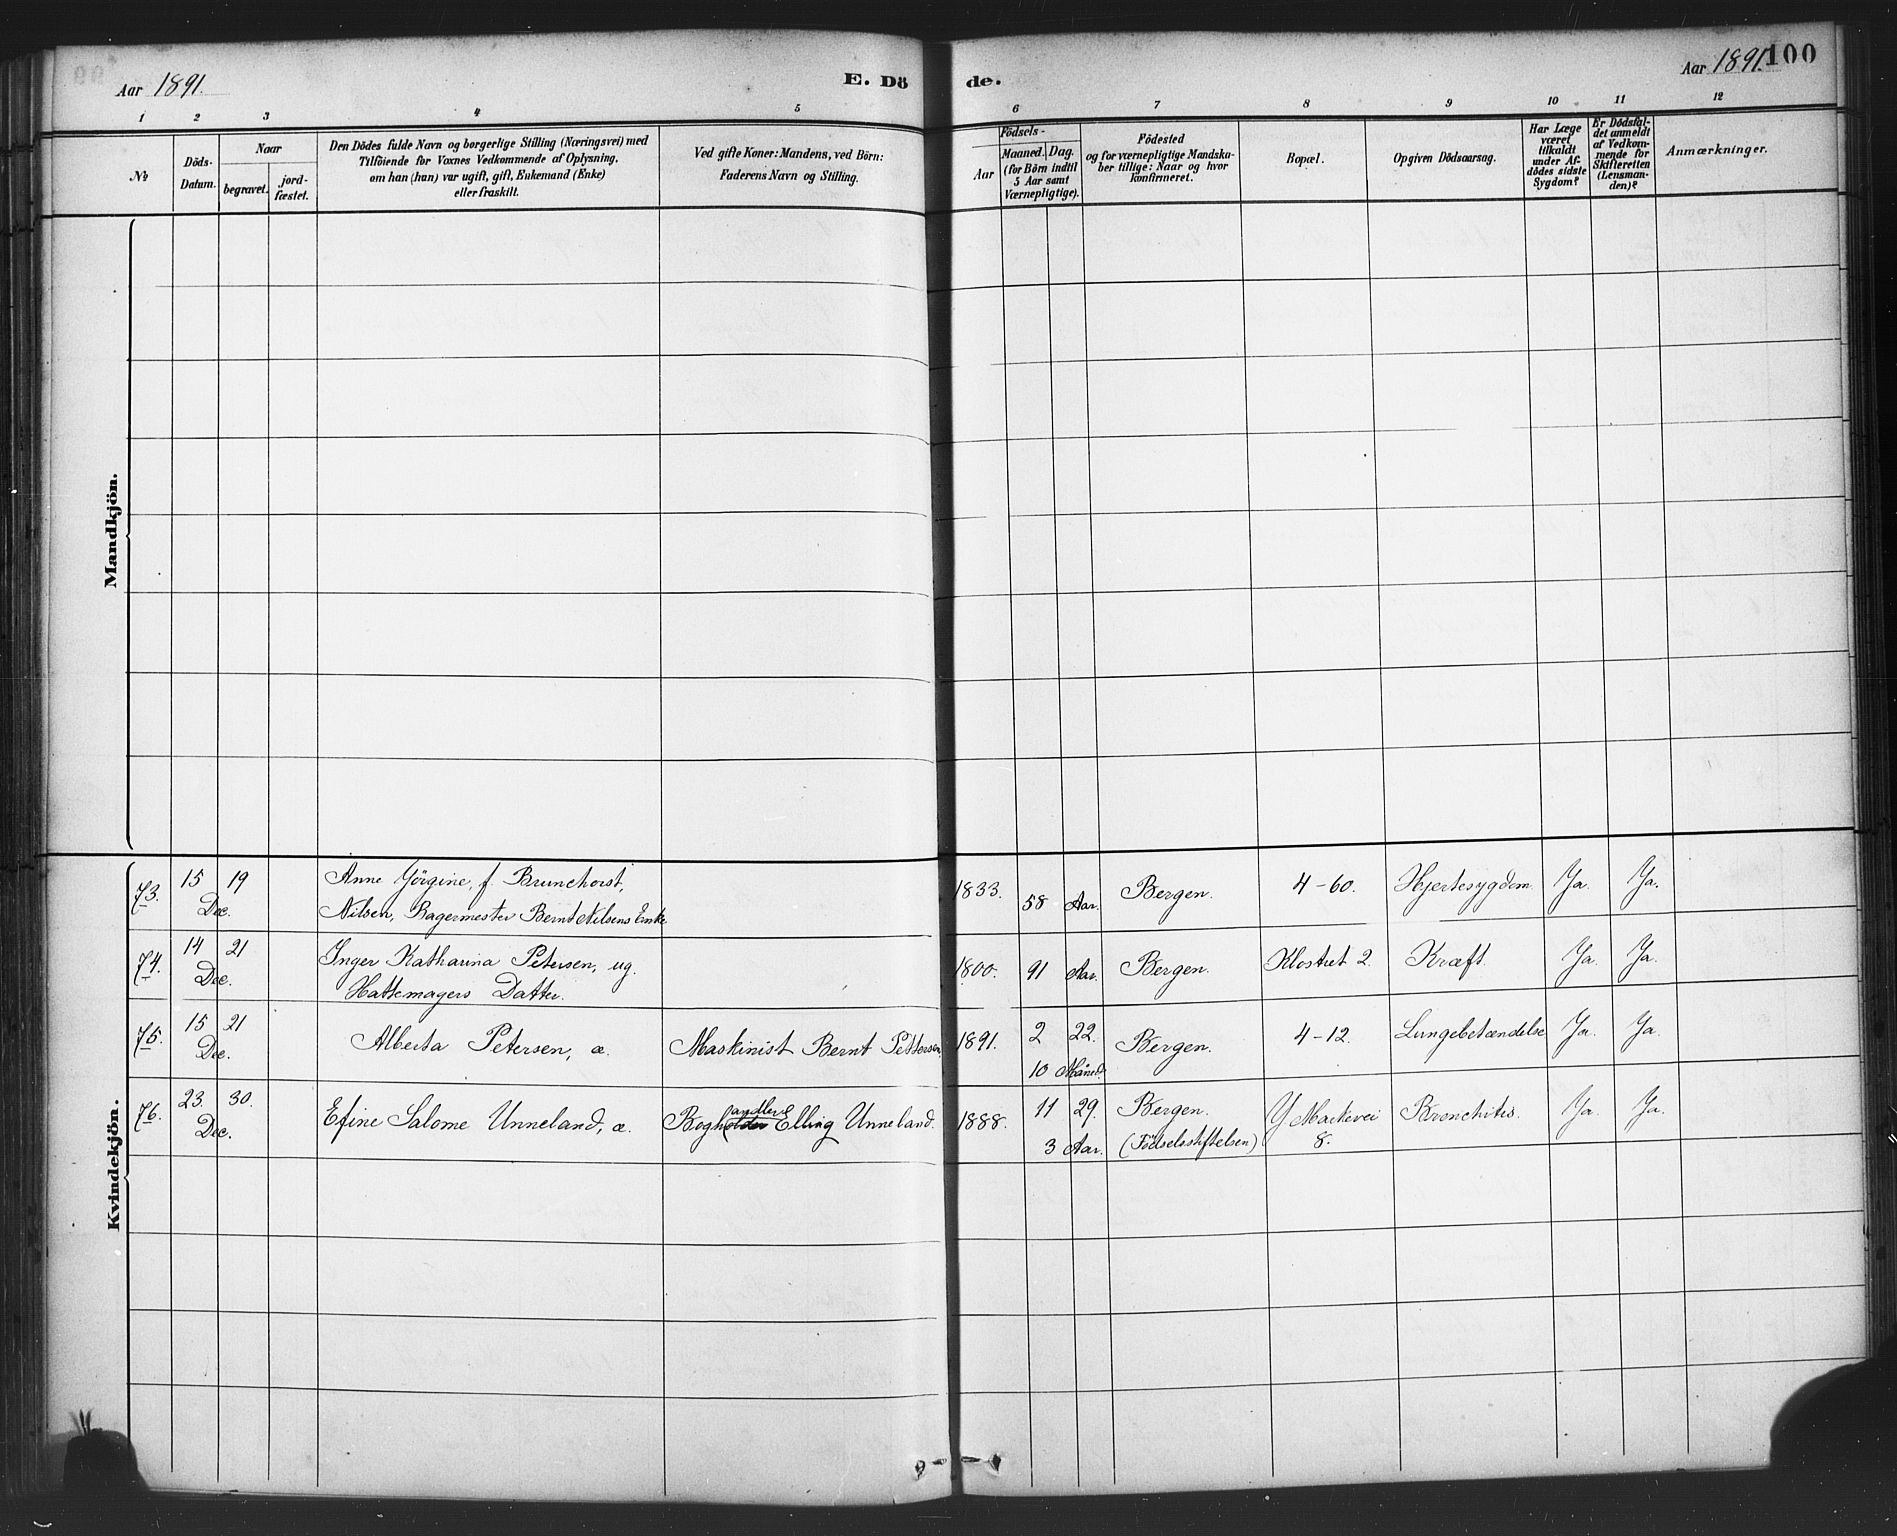 Aar 1891.
E. Dö
de.
Aar 1891.
100
1 2 3 4 5 6 7 8 9 10 11 12
No
Döds-
Datum.
Naar
begravet.
jord-
fæstet.
Den Dödes fulde Navn og borgerlige Stilling (Næringsvei) med
Tilföiende for Voxnes Vedkommende af Oplysning,
om han (hun) var ugift, gift, Enkemand (Enke)
eller fraskilt.
Ved gifte Koner: Mandens, ved Börn:
Faderens Navn og Stilling.
Födsels-
Aar
Maaned. Dag.
(for Börn indtil
5 Aar samt
Værnepligtige).
Födested
og for værnepligtige Mandska-
ber tillige: Naar og hvor
konfirmeret.
Bopæl.
Opgiven Dödsaarsag.
Har Læge
været
tilkaldt
under Af-
dödes sidste
Sygdom?
Er Dödsfal-
det anmeldt
af Vedkom-
mende for
Skifteretten
(Lensman-
den)?
Anmærkninger.
Mandkjön.
Kvindekjön.
73. 15 19 Dec.
Anne Jörgine, f. Brunchorst,
Nilsen, Bagermester Bernt Nilsens Enke
1833. 58 Aar. Bergen. 4-60. Hjertesygdom Ja. Ja.
74. 14 21 Dec.
Inger Katharina Petersen, ug.
Hattemagers Datter.
1800. 91 Aar. Bergen. Klostret 2. Kræft. Ja. Ja.
75. 15 21 Dec.
Alberta Petersen, æ. Maskinist Bernt Pettersen,
1891. 2 22. Bergen. 4-12. Lungebetændelse Ja. Ja.
10 Måned.
76. 23. 30. Dec.
Efine Salome Unneland, æ. Boghandler Elling Unneland.
1888. 11 29. Bergen. Y. Markevei Bronchitis. Ja. Ja.
3 Aar. (Födselsstiftelsen) 8.